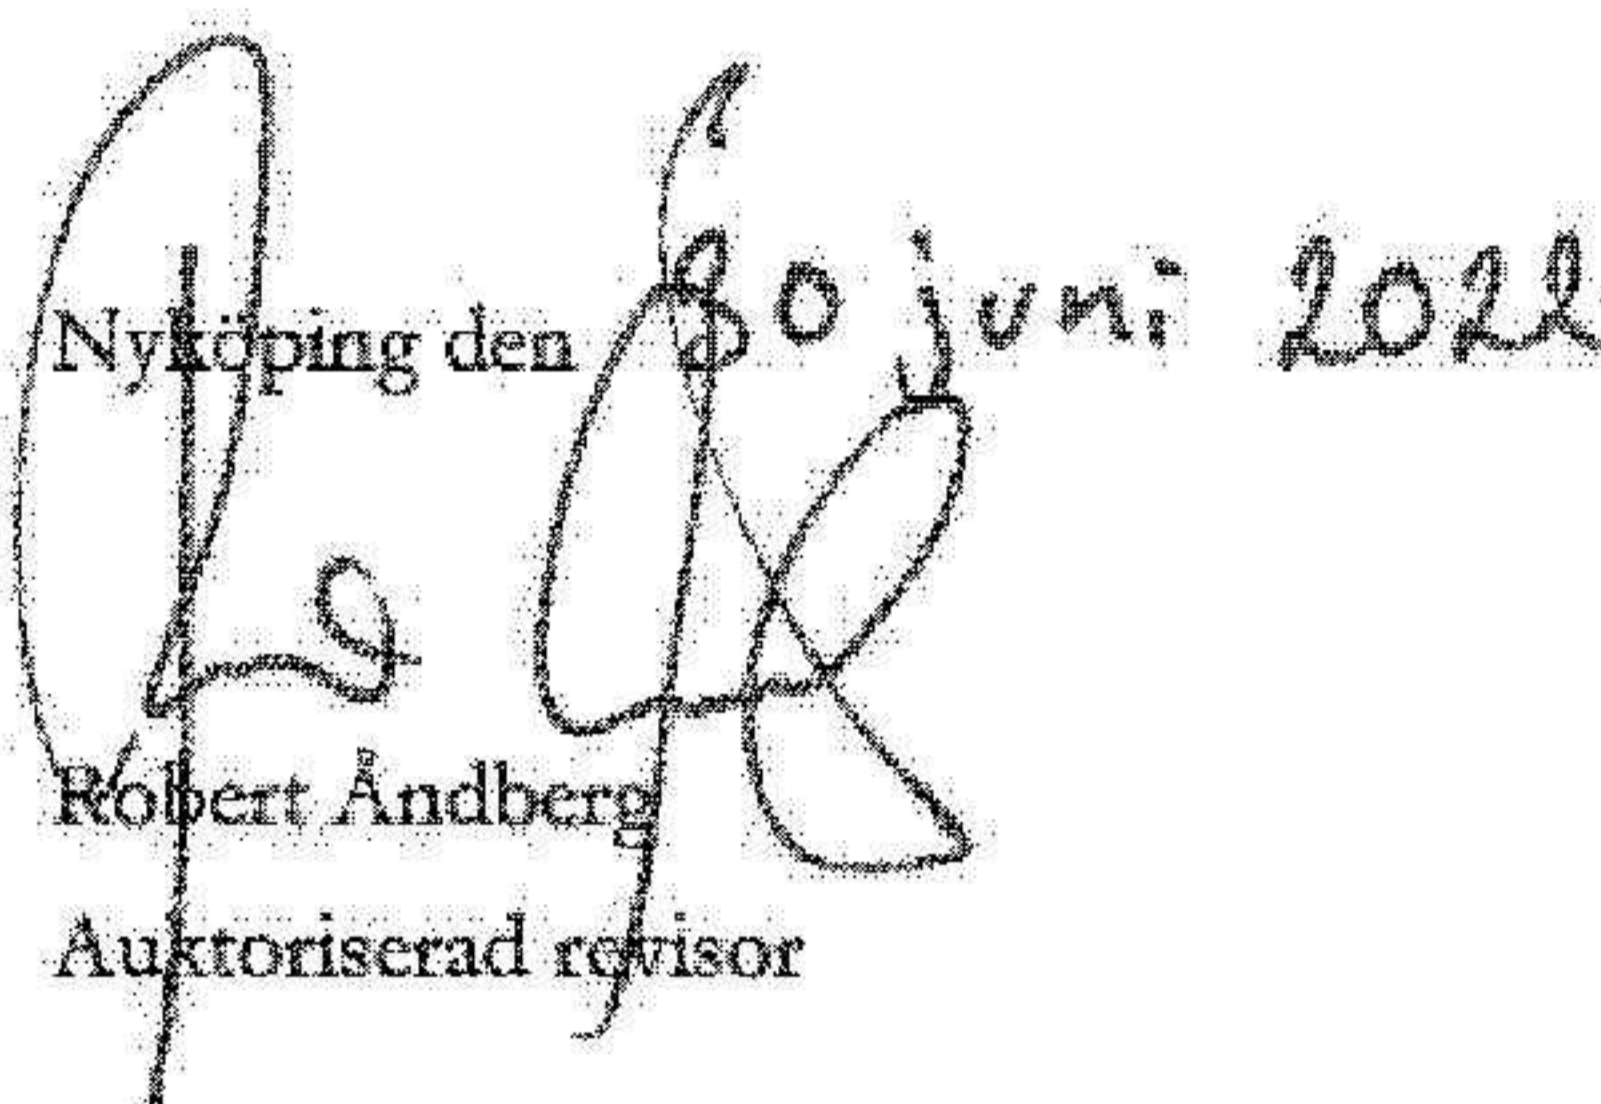 Nyköping den 30 juni 2022
Robert Andberg
Auktoriserad revisor